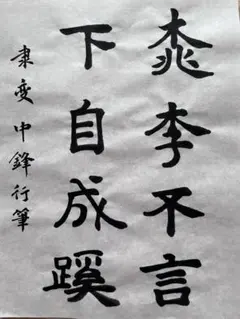 桃李不言
下自成蹊
隶变中鋒行筆